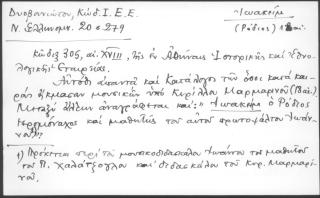 Δυοβουνιώτου, Κώδ. Ι.Ε.Ε.
Ἰωακείμ
Ν. Ἑλληνομν. 20 σ 279
(Ρόδιος) 18 αἰ.
Κῶδιξ 305, αἰ. XVIII, τῆς ἐν Ἀθήναις Ἱστορικῆς καὶ Ἐθνο-
λογικῆς Ἑταιρείας.
Αὐτόθι ἀπαντᾶ καὶ Κατάλογος τῶν ὅσοι κατὰ και-
ροὺς ἤκμασαν μουσικῶν ὑπὸ Κυρίλλου Μαρμαρινοῦ (18 αἰ.)
Μεταξὺ ἄλλων ἀναγράφεται καί: "Ἰωακεὶμ ὁ Ρόδιος
ἱερομόναχος καὶ μαθητὴς τοῦ αὐτοῦ πρωτοψάλτου Ἰωάν-
νου".
1) Πρόκειται περὶ τοῦ μουσικοδιδασκάλου Ἰωάννου τοῦ μαθητοῦ
τοῦ Π. Χαλάτζογλου καὶ διδασκάλου τοῦ Κυρ. Μαρμαρι-
νοῦ.